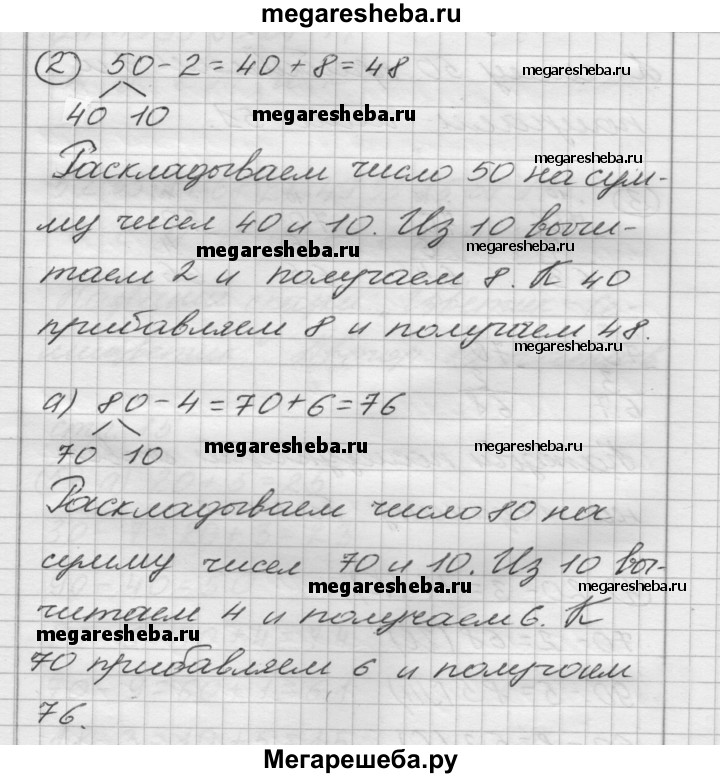 megaresheba.ru
② 50 - 2 = 40 + 8 = 48
megaresheba.ru
40 10
megaresheba.ru
megaresheba.ru
Раскладываем число 50 на сум-
му чисел 40 и 10. Из 10 вычи-
megaresheba.ru
megaresheba.ru
таем 2 и получаем 8. К 40
прибавляем 8 и получаем 48.
megaresheba.ru
а) 80 - 4 = 70 + 6 = 76
70 10
megaresheba.ru
megaresheba.ru
Раскладываем число 80 на
сумму чисел 70 и 10. Из 10 вы-
megaresheba.ru
megaresheba.ru
читаем 4 и получаем 6. К
megaresheba.ru
70 прибавляем 6 и получаем
76.
Мегарешеба.ру